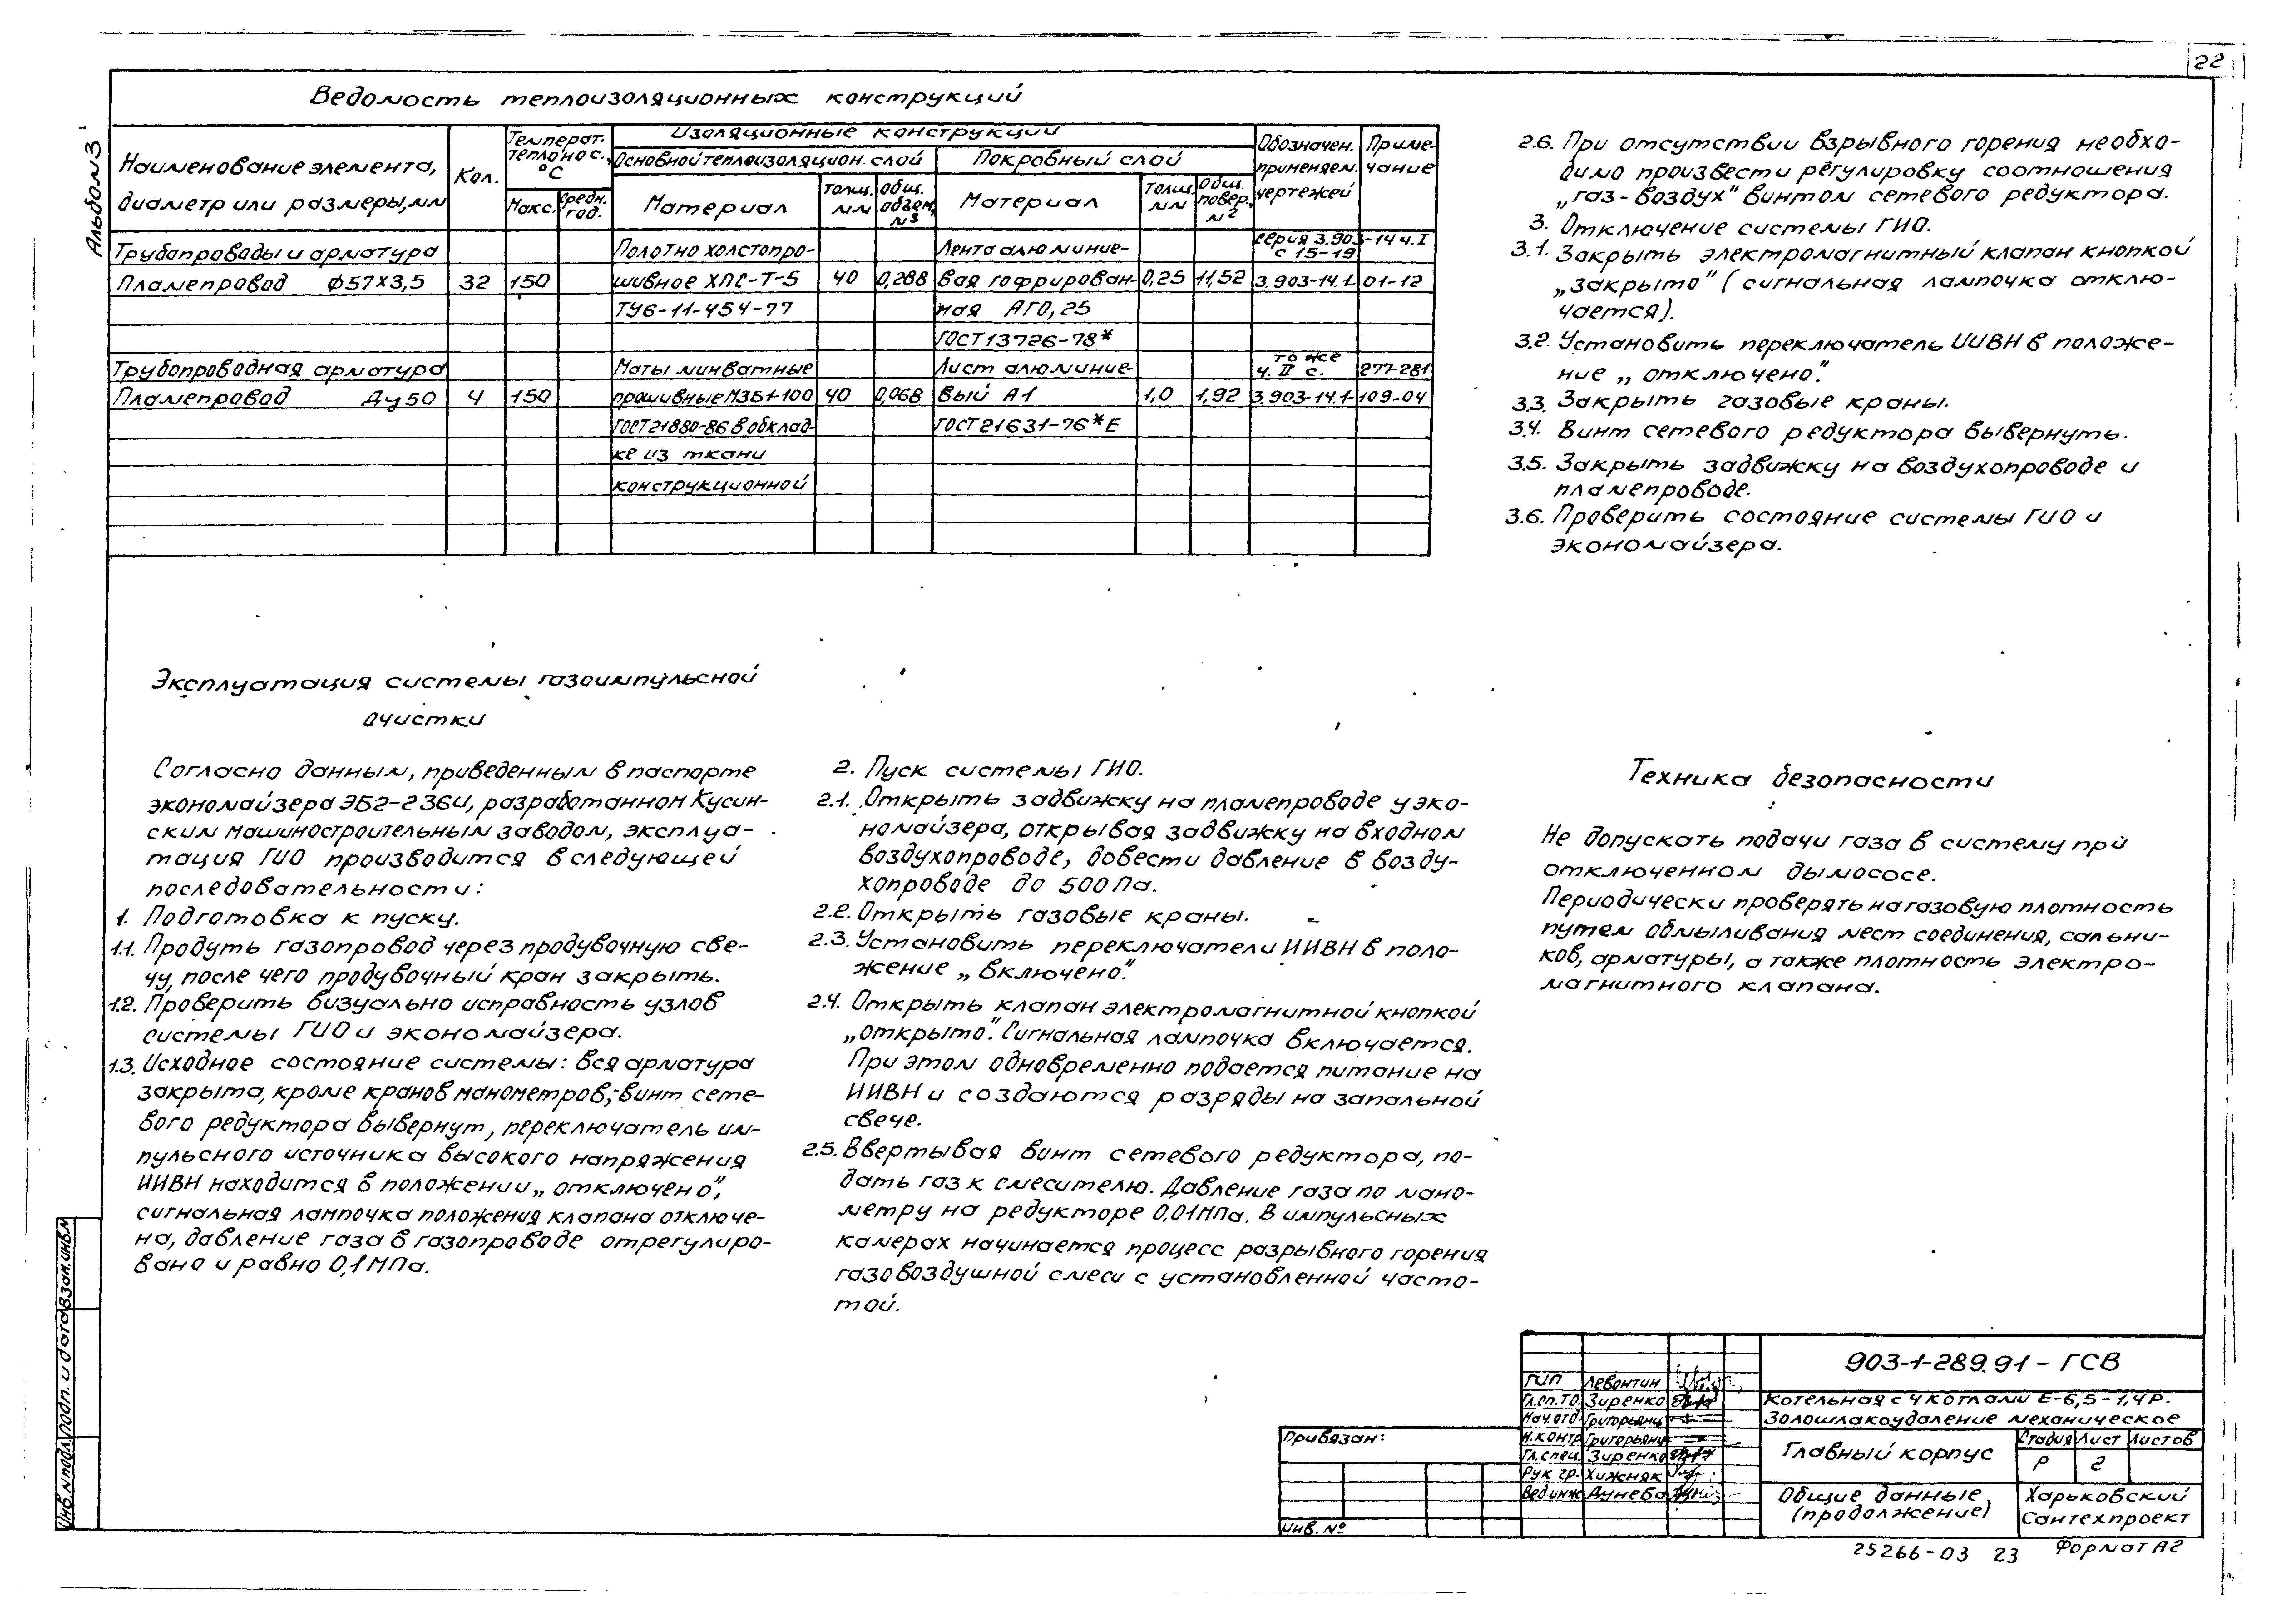 22
Альбом 3
Ведомость теплоизоляционных конструкций
Наименование элемента, диаметр или размеры, мм
Кол.
Температ. теплонос., °С
Макс.
Средн. год.
Изоляционные конструкции
Основной теплоизоляцион. слой
Покровный слой
Материал
толщ. мм
общ. объем, м3
Материал
толщ. мм
Общ. повер., м2
Обозначен. применяем. чертежей
Приме-
чание
Трубопроводы и арматура Полотно холстопро- Лента алюминие- серия 3.903-14 ч.I
с 15-19
Пламепровод ф57х3,5 32 150 шивное ХПС-Т-5 40 0,288 вая гофрирован- 0,25 11,52 3.903-14.1- 01-12
ТУ6-11-454-77 ная АГО,25
ГОСТ13726-78*
Трубопроводная арматура Маты минватные Лист алюминие- то же ч. II с. 277-281
Пламепровод Ду50 4 150 прошивные М3Б1-100 40 0,068 вый А1 1,0 1,92 3.903-14.1- 109-04
ГОСТ21880-86 в обклад- ГОСТ21631-76*Е
ке из ткани
конструкционной
2.6. При отсутствии взрывного горения необхо-
димо произвести регулировку соотношения
„газ-воздух" винтом сетевого редуктора.
3. Отключение системы ГИО.
3.1. Закрыть электромагнитный клапан кнопкой
„закрыто" (сигнальная лампочка отклю-
чается).
3.2. Установить переключатель ИИВН в положе-
ние „отключено".
3.3. Закрыть газовые краны.
3.4. Винт сетевого редуктора вывернуть.
3.5. Закрыть задвижку на воздухопроводе и
пламепроводе.
3.6. Проверить состояние системы ГИО и
экономайзера.
Эксплуатация системы газоимпульсной
очистки
Согласно данным, приведенным в паспорте
экономайзера ЭБ2-236И, разработанном Кусин-
ским машиностроительным заводом, эксплуа-
тация ГИО производится в следующей
последовательности:
1. Подготовка к пуску.
1.1. Продуть газопровод через продувочную све-
чу, после чего продувочный кран закрыть.
1.2. Проверить визуально исправность узлов
системы ГИО и экономайзера.
1.3. Исходное состояние системы: вся арматура
закрыта, кроме кранов манометров,-винт сете-
вого редуктора вывернут, переключатель им-
пульсного источника высокого напряжения
ИИВН находится в положении „отключено",
сигнальная лампочка положения клапана отключе-
на, давление газа в газопроводе отрегулиро-
вано и равно 0,1 МПа.
2. Пуск системы ГИО.
2.1. Открыть задвижку на пламепроводе у эко-
номайзера, открывая задвижку на входном
воздухопроводе, довести давление в возду-
хопроводе до 500 Па.
2.2. Открыть газовые краны.
2.3. Установить переключатели ИИВН в поло-
жение „включено".
2.4. Открыть клапан электромагнитной кнопкой
„открыто". Сигнальная лампочка включается.
При этом одновременно подается питание на
ИИВН и создаются разряды на запальной
свече.
2.5. Ввертывая винт сетевого редуктора, по-
дать газ к смесителю. Давление газа по мано-
метру на редукторе 0,01МПа. В импульсных
камерах начинается процесс разрывного горения
газовоздушной смеси с установленной часто-
той.
Техника безопасности
Не допускать подачи газа в систему при
отключенном дымососе.
Периодически проверять на газовую плотность
путем обмыливания мест соединения, сальни-
ков, арматуры, а также плотность электро-
магнитного клапана.
Инв.№ подл. Подп. и дата Взам.инв.№
Привязан:
Инв. №
ГИП Левонтин
Гл.сп.ТО. Зиренко
Нач.отд. Григорьянц
Н.контр. Григорьянц
Гл.спец. Зиренко
Рук гр. Хижняк
Вед.инж. Дунева
903-1-289.91 - ГСВ
Котельная с 4 котлами Е-6,5-1,4Р.
Золошлакоудаление механическое
Главный корпус
Стадия Лист Листов
Р 2
Общие данные
(продолжение)
Харьковский
Сантехпроект
25266-03 23 Формат А2